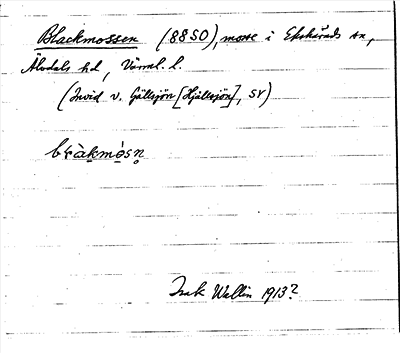 Blackmossen (8850), mosse i Ekshärads sn,
Älvdals hd, Värml. l.
(Invid v. Gällsjön [Hjällsjön], SV)
bɽàkmòsn̥
Isak Wallin 1913?